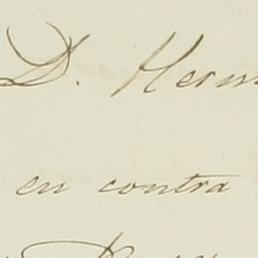 D. Herm
en contra